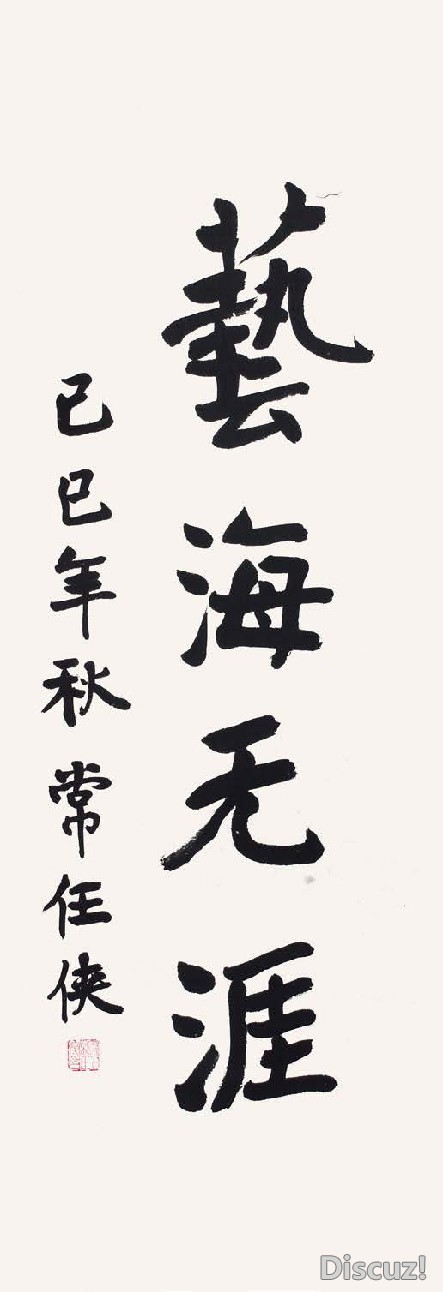 藝海无涯
己巳年秋 常任侠
Discuz!